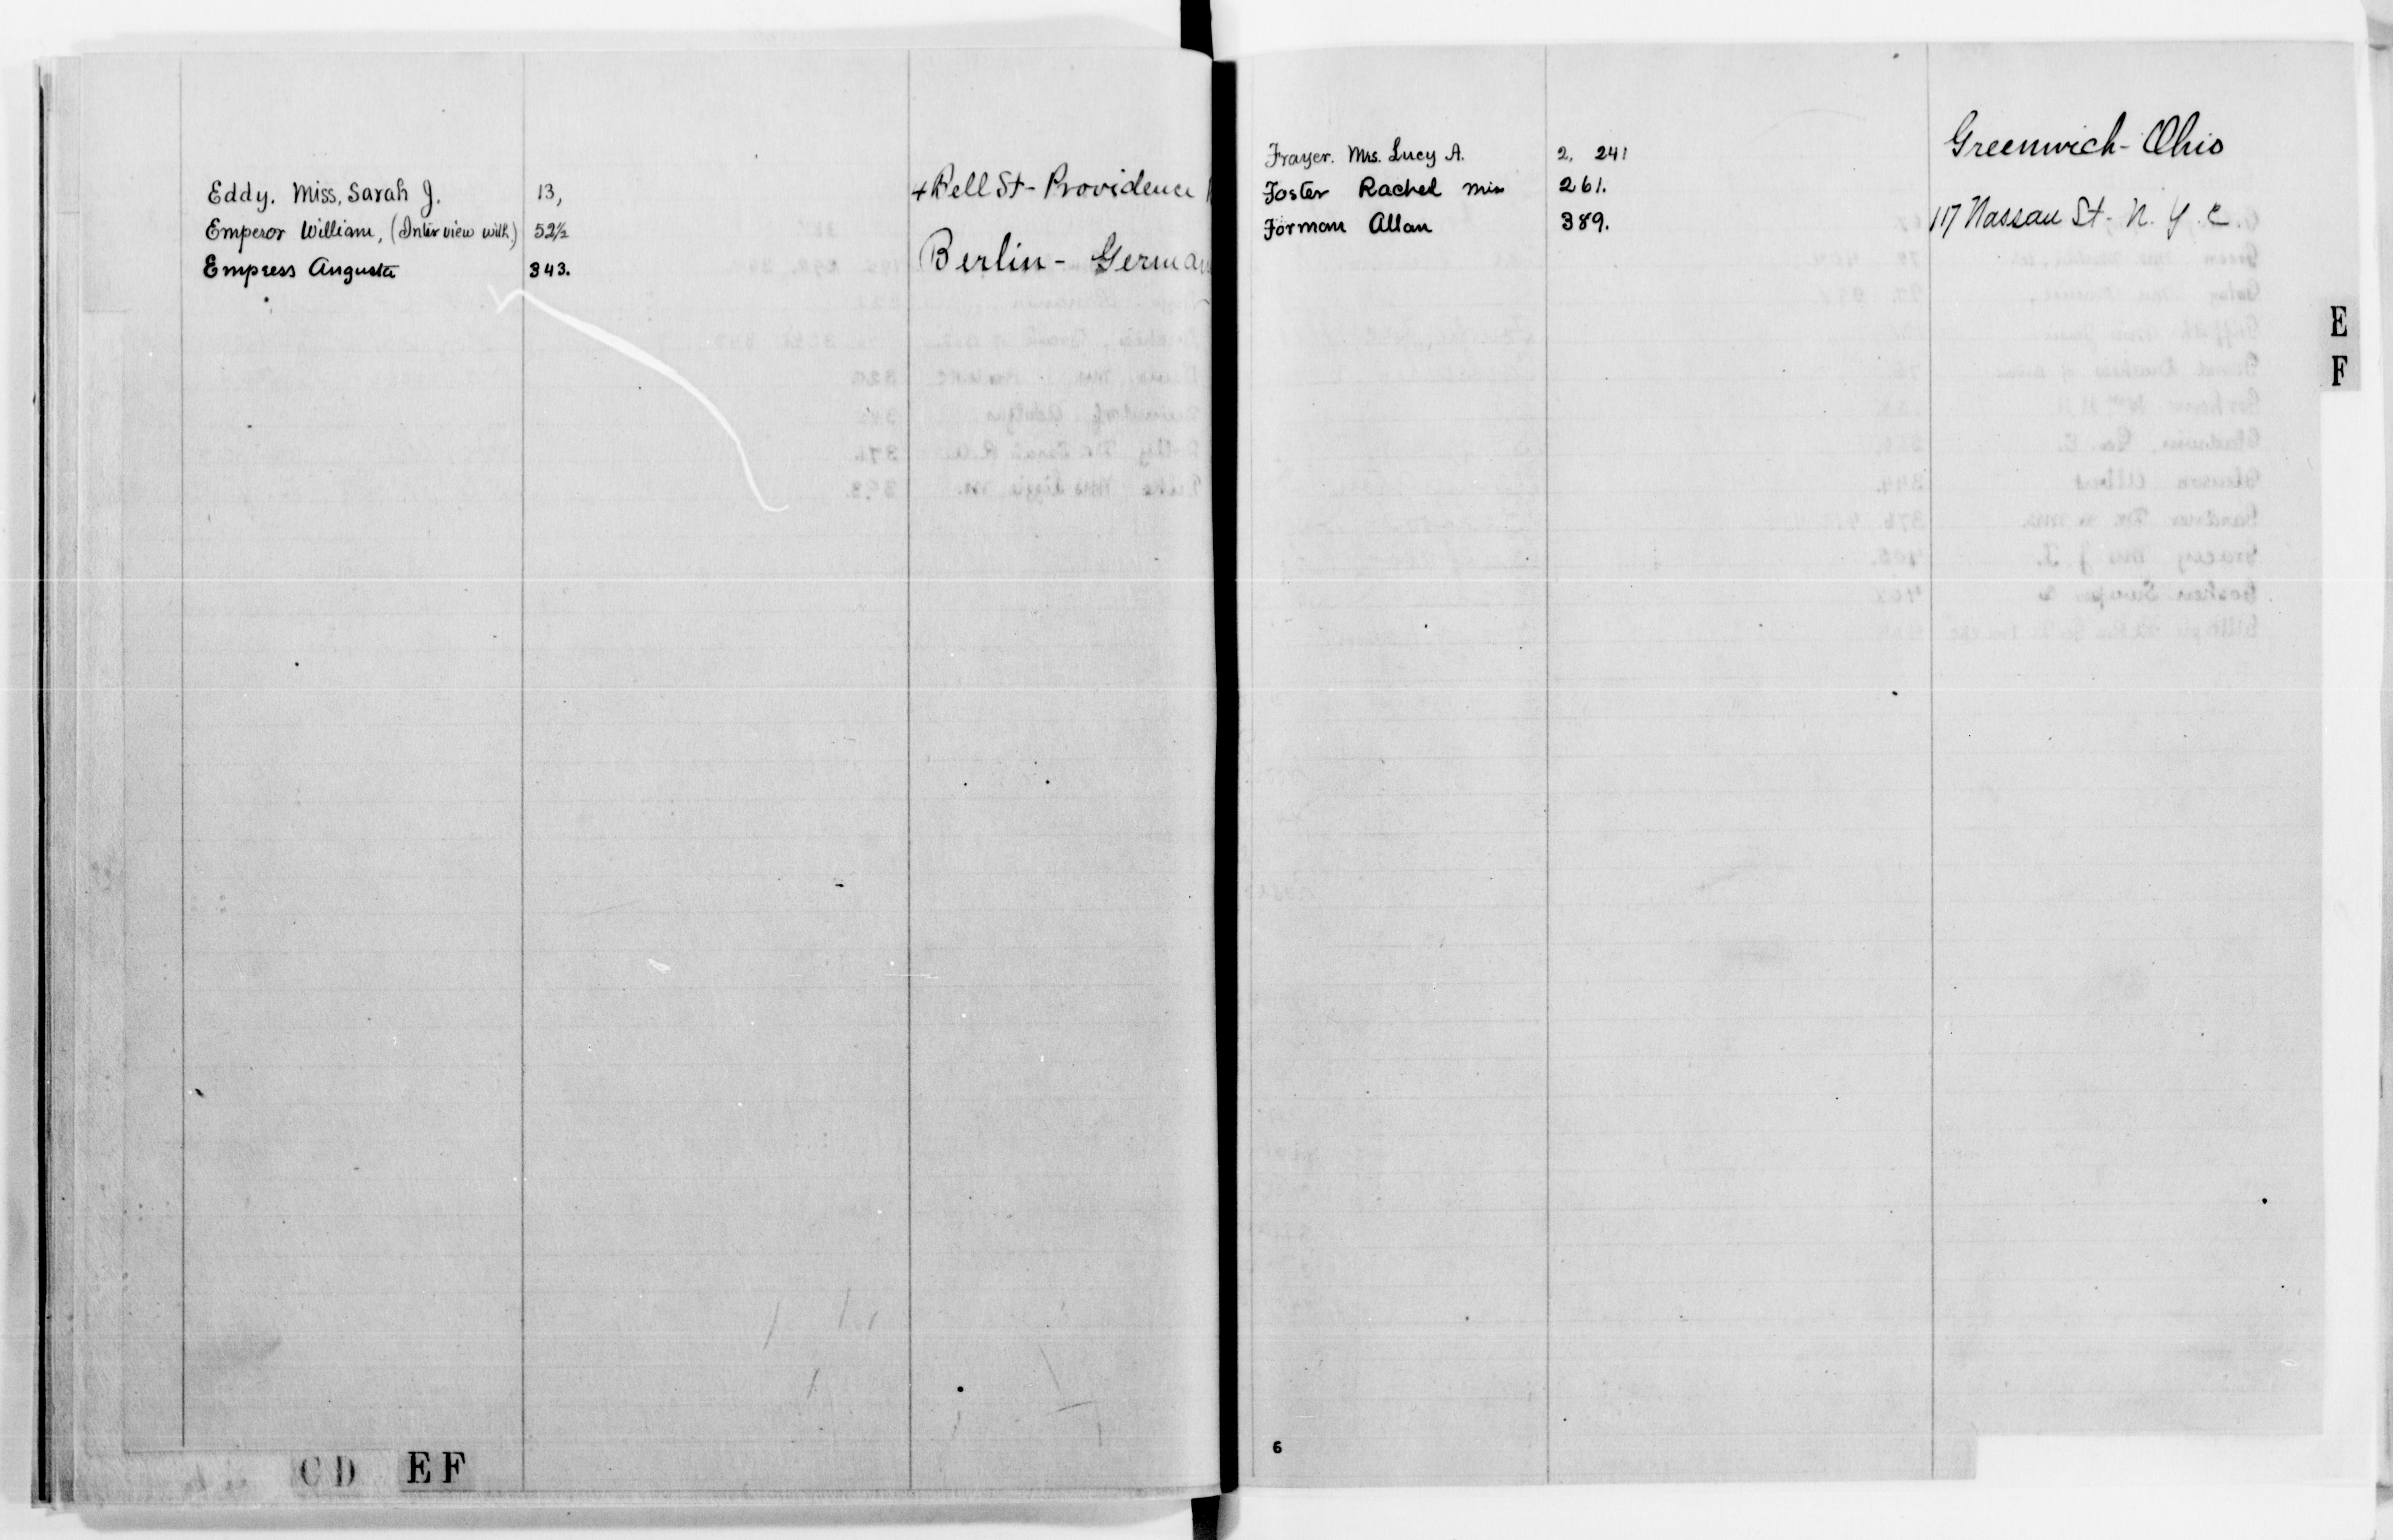 Eddy. Miss, Sarah J. 13, 4 Bell St - Providence
Emperor William, (Interview with) 52½
Empress Augusta 343. Berlin - German
C D E F
Frayer. Mrs. Lucy A. 2, 241 Greenwich - Ohio
Foster Rachel Miss 261.
Forman Allan 389. 117 Nassau St - N. Y. C.
E
F
6